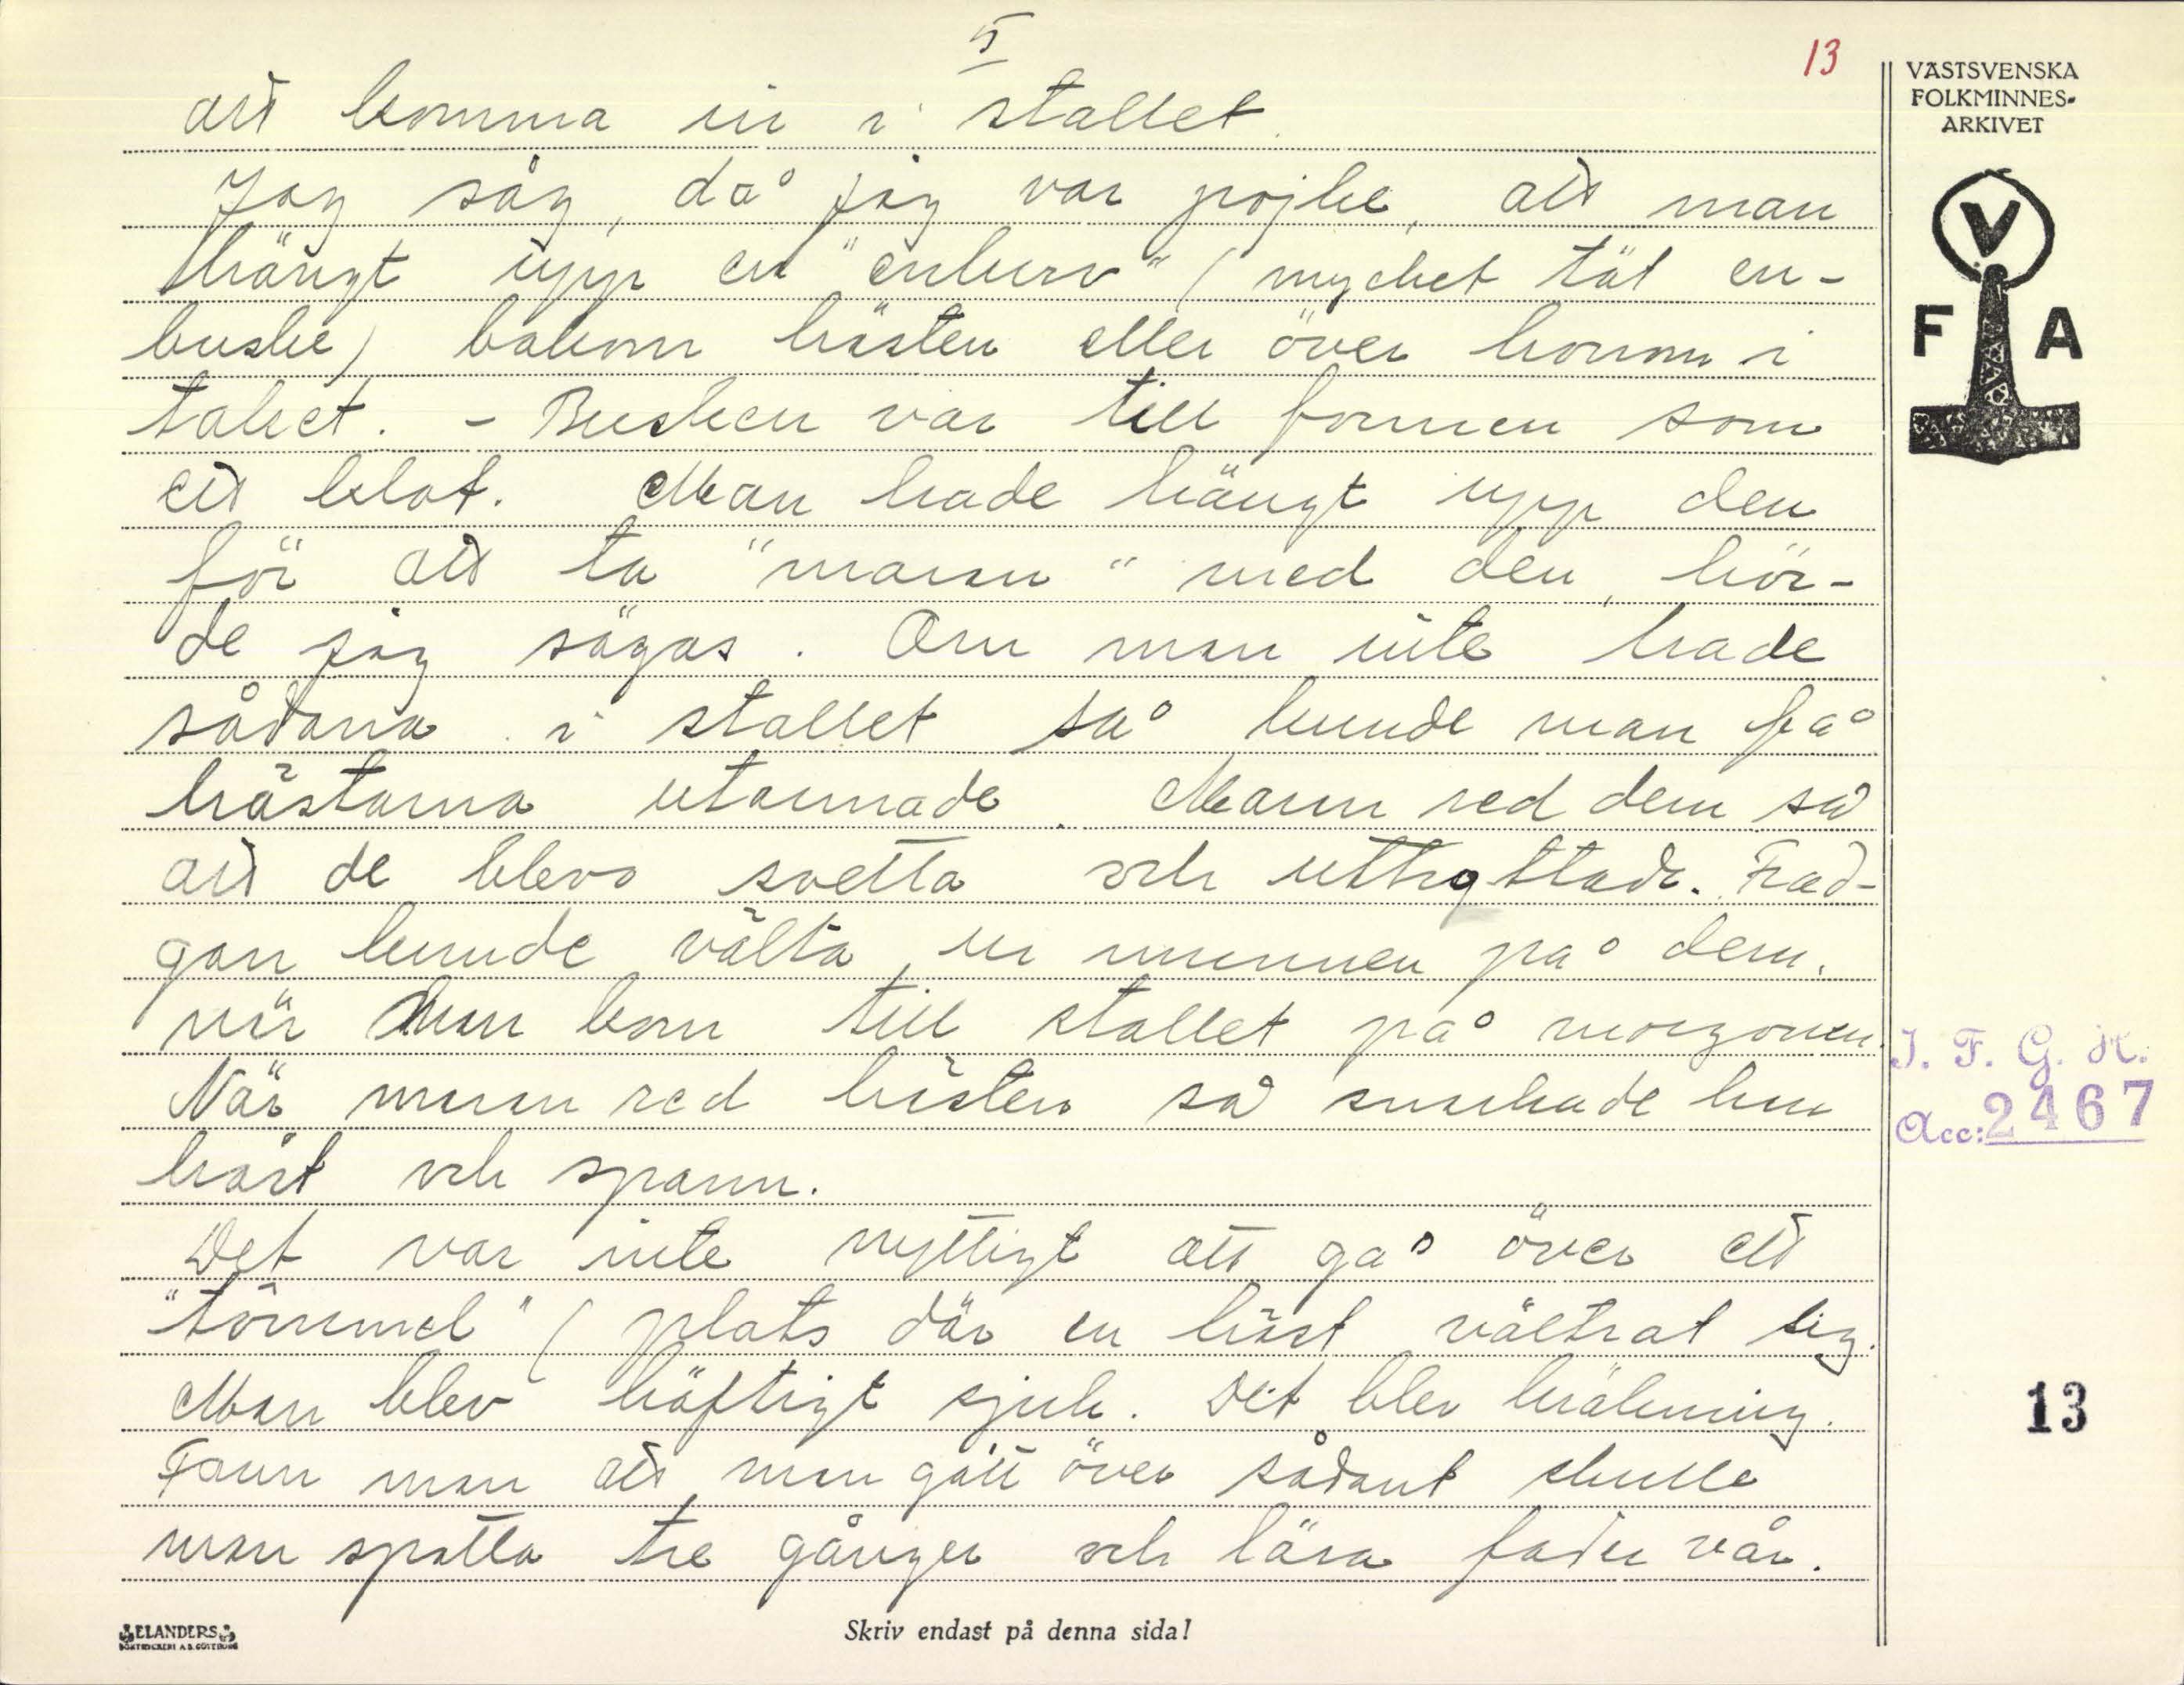 5
13
att komma in i stallet.
Jag såg, då jag var pojke, att man
hängt upp en "enkurv" (mycket tät en-
buske) bakom hästen eller över honom i
taket. - Busken var till formen som
ett klot. Man hade hängt upp den
för att ta "maran" med den, hör-
de jag sägas. Om man inte hade
sådana i stallet så kunde man få
hästarna utarmade. Maran red dem så
att de blevo svetta och uttröttade. Frad-
gan kunde välta ur munnen på dem,
när man kom till stallet på morgonen.
När maran red hästen så snarkade han
hårt och spann.
Det var inte nyttigt att gå över ett
"tömmel" (plats där en häst vältrat sig.
Man blev häftigt sjuk. Det blev kräkning.
Fann man att man gått över sådant skulle
man spotta tre gånger och läsa fader vår.
VÄSTSVENSKA
FOLKMINNES-
ARKIVET
V
F A
I. F. G. H.
Acc: 2467
13
ELANDERS
BOKTRYCKERI A.B. GÖTEBORG
Skriv endast på denna sida!